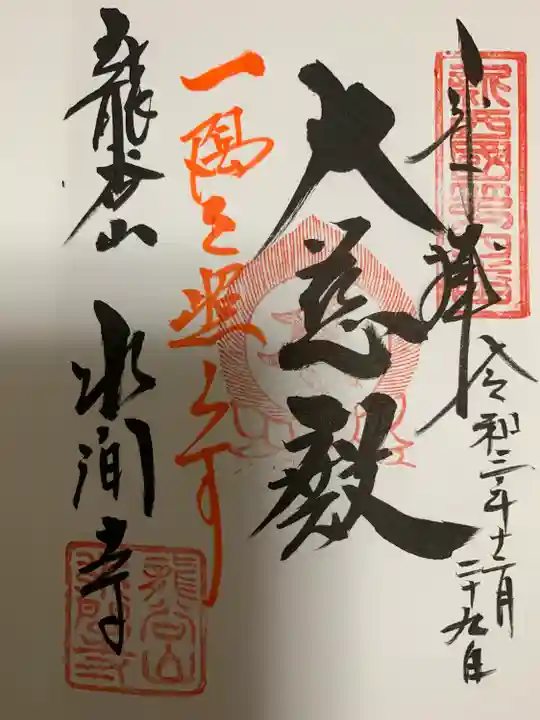 奉拝
令和三年十二月
二十九日
大慈殿
一隅を照らす
龍谷山 水間寺
龍谷山